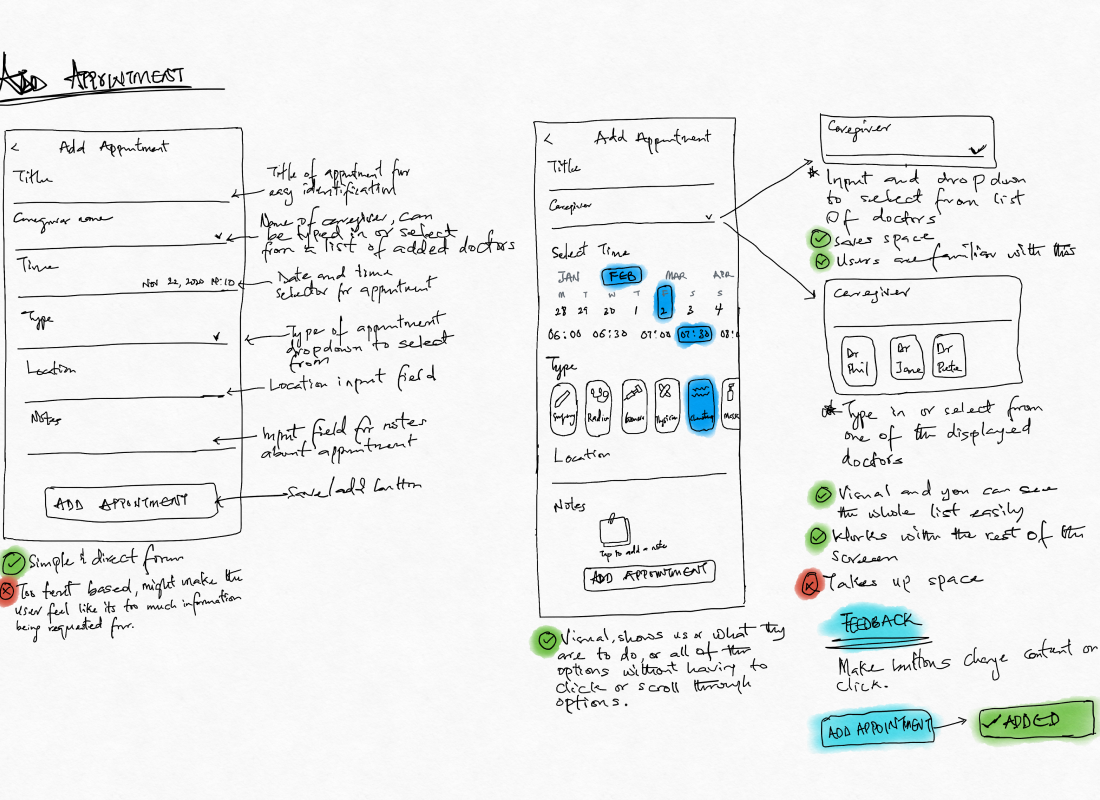 ADD APPOINTMENT
< Add Appointment
Title
Caregiver name
Time
Nov 22, 2020
Type
Location
Notes
ADD APPOINTMENT
Title of appointment for
easy identification
Name of caregiver, can
be typed in or select
from a list of added doctors
Date and time
selector for appointment
Type of appointment
dropdown to select
from
Location input field
Input field for notes
about appointment
Save/add button
Simple & direct form
Too text based, might make the
user feel like its too much information
being requested for.
< Add Appointment
Title
Caregiver
Select Time
JAN FEB MAR APR
M T W T F S S
28 29 30 1 2 3 4
06:00 06:30 07:00 07:30 08:
Type
Surgery Radio Physician
Location
Notes
Tap to add a note
ADD APPOINTMENT
Visual, shows us or what they
are to do, or all of the
options without having to
click or scroll through
options.
Caregiver
* Input and drop down
to select from list
of doctors
Saves space
Users are familiar with this
Caregiver
Dr Phil
Dr Jane
Dr Pete
* Type in or select from
one of the displayed
doctors
Visual and you can see
the whole list easily
Works with the rest of the
screen
Takes up space
FEEDBACK
Make buttons change content on
click.
ADD APPOINTMENT
ADDED